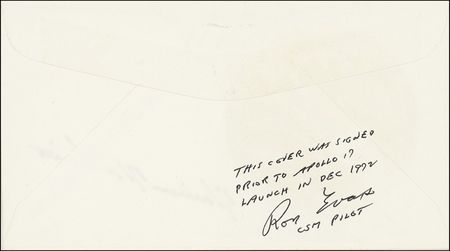 THIS COVER WAS SIGNED
PRIOR TO APOLLO 17
LAUNCH IN DEC 1972
Ron Evans
CSM PILOT